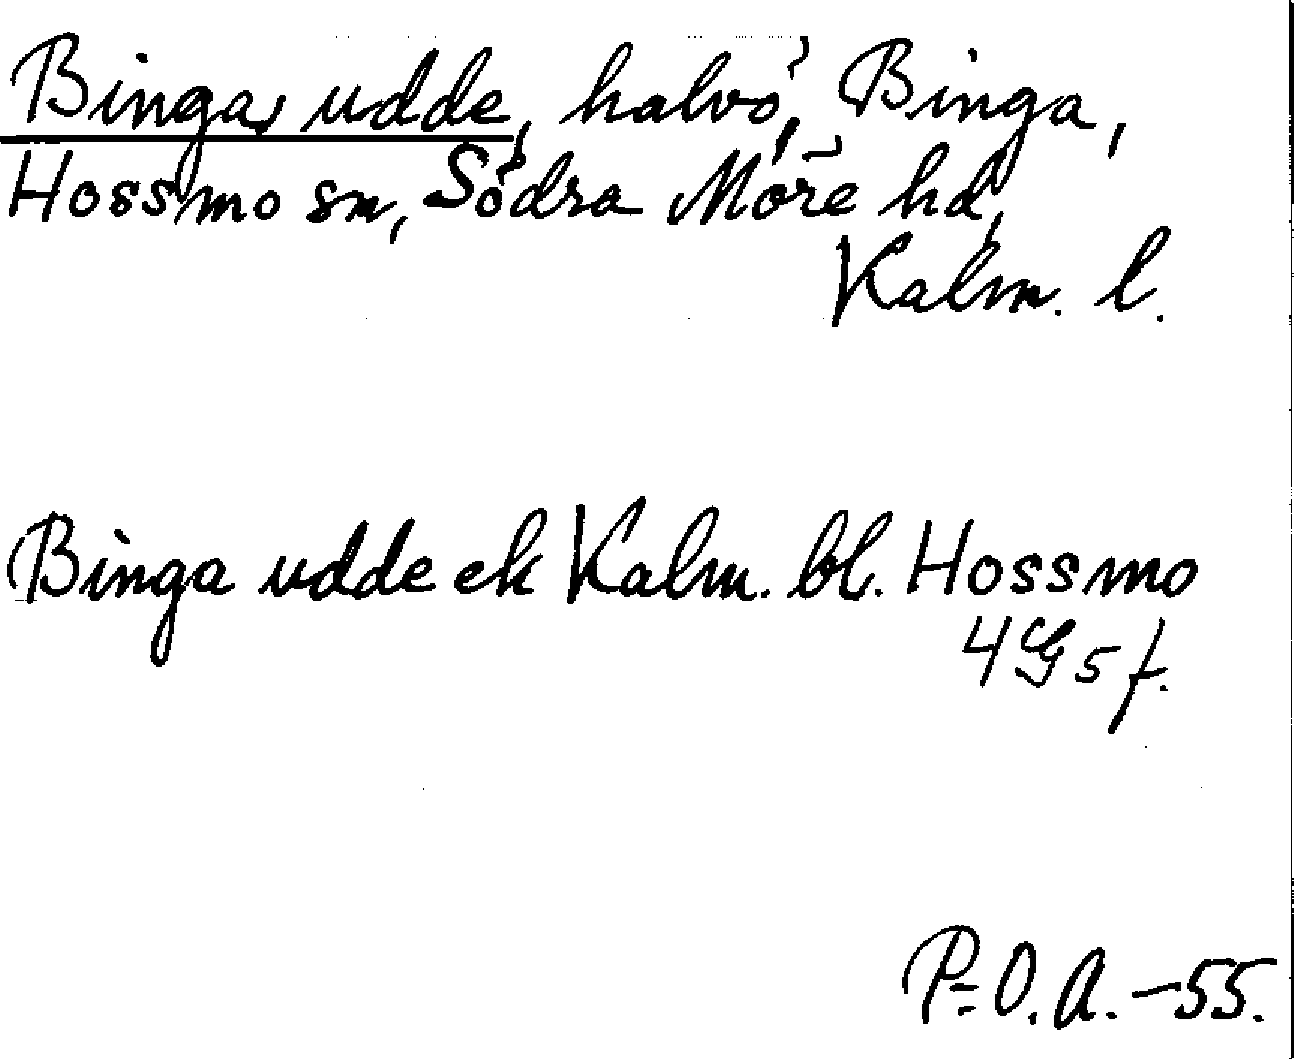 Binga udde, halvö, Binga,
Hossmo sn, Södra Möre hd,
Kalm. l.
Binga udde ek Kalm. bl. Hossmo
4G5f.
P-O.A.-55.